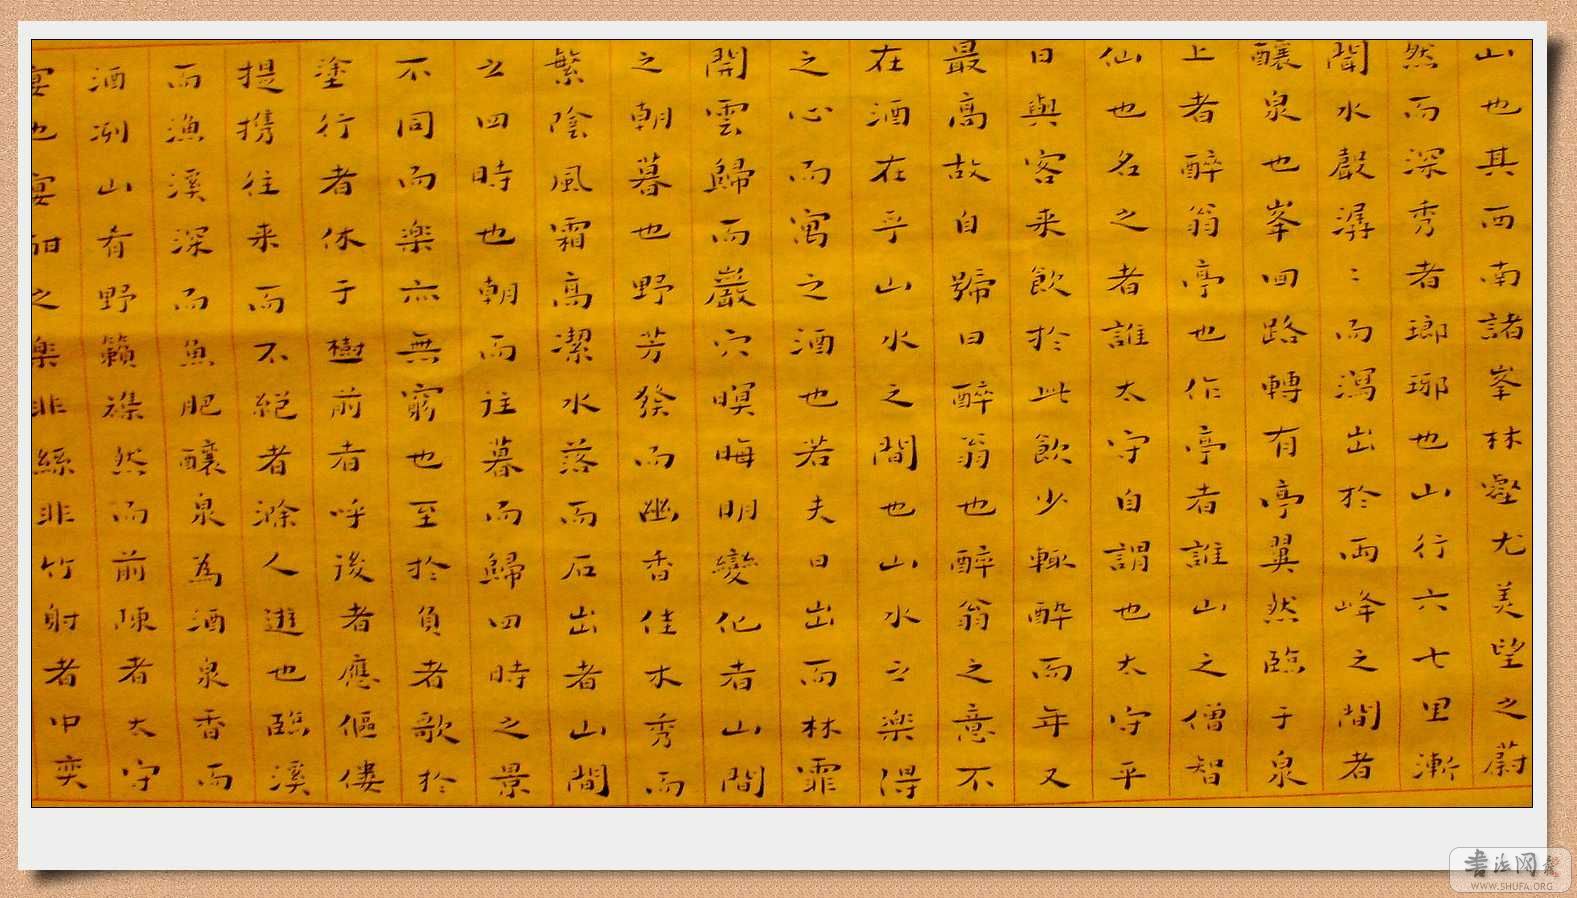 山也其西南諸峯林壑尤美望之蔚
然而深秀者瑯琊也山行六七里漸
聞水聲潺〻而瀉出於兩峰之間者
釀泉也峯回路轉有亭翼然臨于泉
上者醉翁亭也作亭者誰山之僧智
仙也名之者誰太守自謂也太守平
日與客来飲於此飲少輒醉而年又
最高故自號曰醉翁也醉翁之意不
在酒在乎山水之間也山水之樂得
之心而寓之酒也若夫日出而林霏
開雲歸而巖穴暝晦明變化者山間
之朝暮也野芳發而幽香佳木秀而
繁陰風霜高潔水落而石出者山間
之四時也朝而往暮而歸四時之景
不同而樂亦無窮也至於負者歌於
塗行者休于樹前者呼後者應傴僂
提携往来而不絕者滁人遊也臨溪
而漁溪深而魚肥釀泉為酒泉香而
酒洌山肴野蔌雜然而前陳者太守
宴也宴酣之樂非絲非竹射者中奕
書法网
WWW.SHUFA.ORG